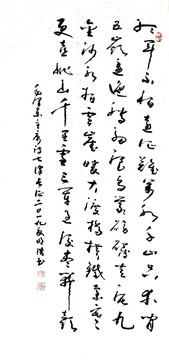 红军不怕远征难万水千山只等闲
五岭逶迤腾细浪乌蒙磅礴走泥丸
金沙水拍云崖暖大渡桥横铁索寒
更喜岷山千里雪三军过后尽开颜
毛泽东主席诗七律长征二〇一九年书